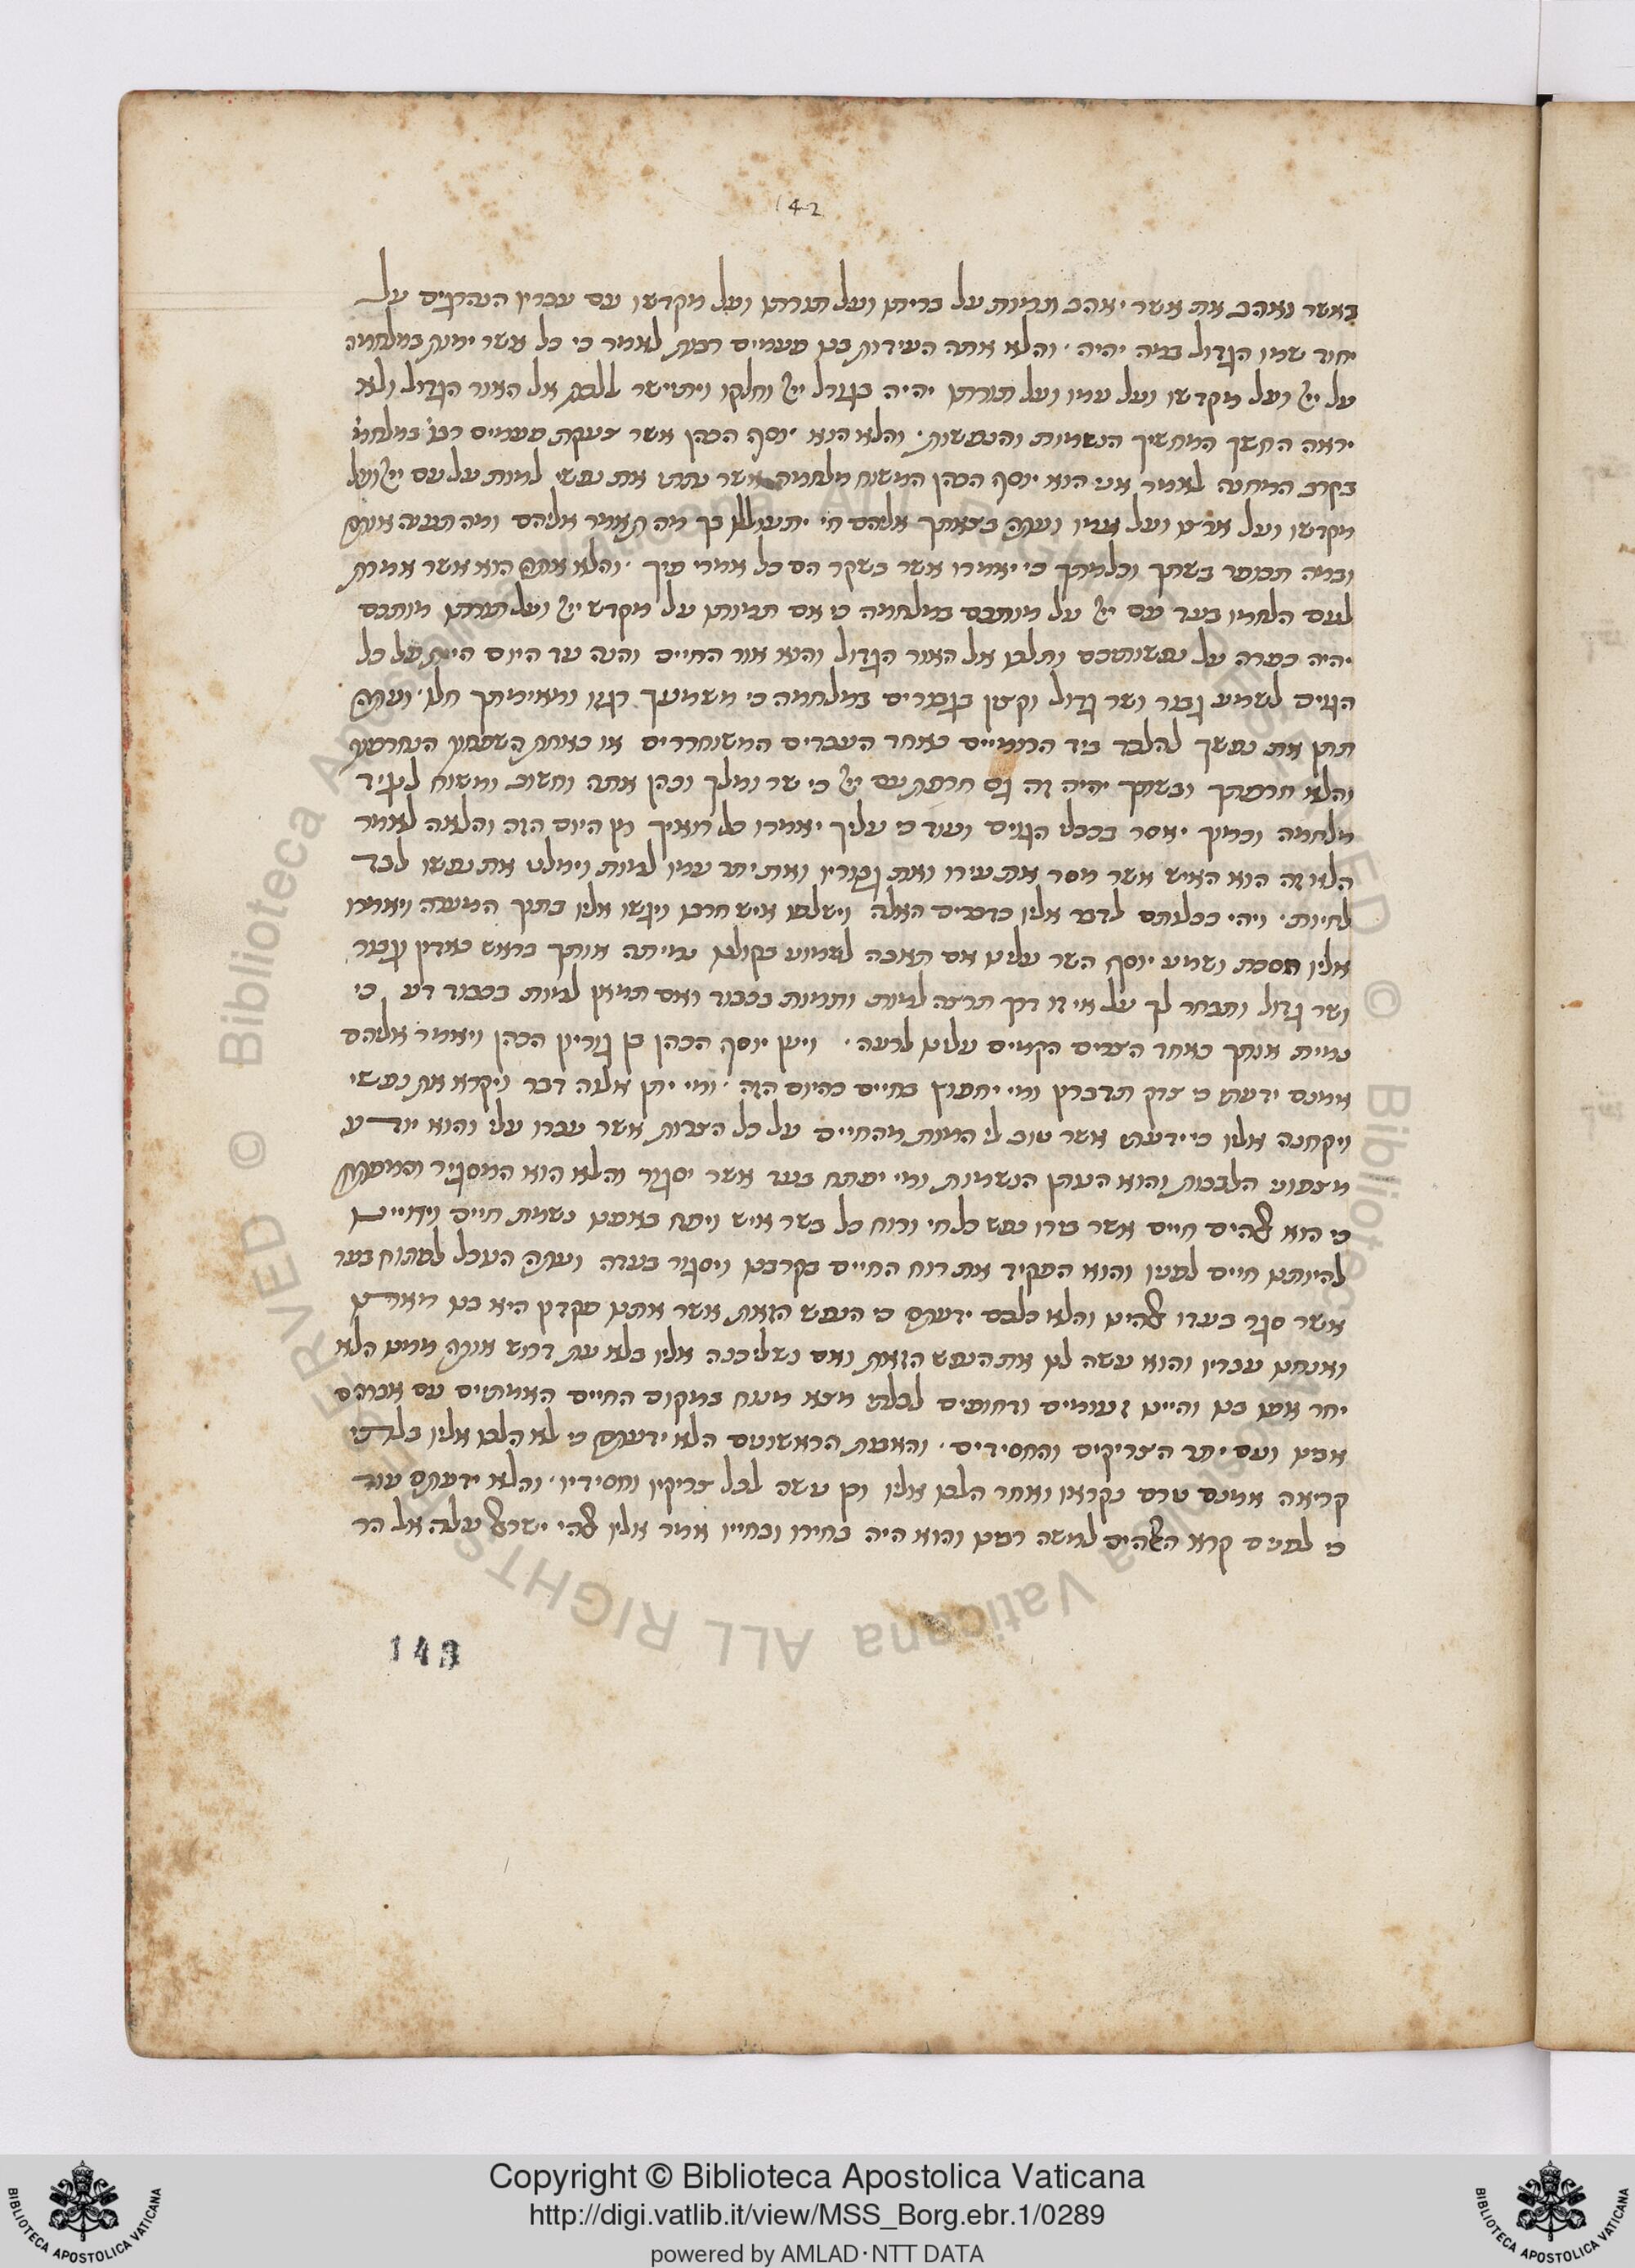 142
באשר נאהב את אשר יאהב תמות על בריתו ועל תורתו ועל מקדשו עם עבדיו הנהרגים על
יחוד שמו הגדול במה יהיה · והלא אתה העידות בנו פעמים רבות לאמר כי כל אשר ימות במלחמה
על ייי ועל מקדשו ועל עמו ועל תורתו יהיה בגורל ייי וחלקו ויתיישר ללכת אל האור הגדול ולא
יראה החשך המחשיך הנשמות והנפשות · והלא הוא יוסף הכהן אשר צעקת פעמים רבו׳ במלחמ׳
בקרב המחנה לאמר אני הוא יוסף הכהן המשוח מלחמה אשר נתתי את נפשי למות על עם ייי ועל
מקדשו ועל ארצו ועל עמו ועתה בצאתך אליהם חי יתעוללו בך מה תאמר אליהם ומה תענה אותם
ובמה תכופר בשתך וכלמתך כי יאמרו אשר בשקר הם כל אמרי פיך · והלא אתה הוא אשר אמרת
לעם הלחמו בעד עם ייי על מותכם במלחמה כי אם תמותו על מקדש ייי ועל תורתו מותכם
יהיה כפרה על נפשותיכם ותלכו אל האור הגדול והוא אור החיים והנה עד היום היית על כל
הגוים לשמע גבור ושר גדול וקצין בגבורים במלחמה כי משמעך רגזו ומאימתך חלו · ועתה
תתן את נפשך להלכד ביד הרומיים כאחד העבדים המשוחררים או כאחת השפחות הנחרפות
והלא חרפתך ובשתך יהיה זה גם חרפת עם ייי כי שר ומלך וכהן אתה וחשוב ומשוח לנגיד
מלחמה וכמוך יאסר בכבלי הגוים ועוד כי עליך יאמרו כל רואיך מן היום הזה והלאה לאמר
הלא זה הוא האיש אשר מסר את עירו ואת גבוריו ואת יתר עמו למות וימלט את נפשו לבד
לחיות · ויהי ככלותם לדבר אליו כדברים האלה וישלפו איש חרבו ויגשו אליו בתוך המערה ויאמרו
אליו הסכת ושמע יוסף השר עלינו אם תאבה לשמוע בקולנו נמיתה אותך בראש כאדון וגבור
ושר גדול ותבחר לך על אי זו דרך תרצה למות ותמות בכבוד ואם תמאן למות בכבוד דע כי
נמית אותך כאחד הצרים הקמים עלינו לרעה · ויען יוסף הכהן בן גוריון הכהן ויאמר אליהם
אמנם ידעתי כי צדק תדברון ומי יחפוץ בחיים כהיום הזה · ומי יתן אלוה דבר ויקרא את נפשי
ויקחנה אליו כי ידעתי אשר טוב לי המות מהחיים על כל הצרות אשר עברו עלי והוא יודע
מצפוני הלבבות והוא הנותן הנשמות ומי יפתח בעד אשר יסגור והלא הוא המסגיר והמפתח
כי הוא אלהים חיים אשר בידו נפש כל חי ורוח כל בשר איש ויפח באפינו נשמת חיים
להיותינו חיים לפניו והוא הפקיד את רוח החיים בקרבנו ויסגור בעדה ועתה הנוכל לפתוח בעד
אשר סגר בעדו אלהינו והלא כלכם ידעתם כי הנפש הזאת אשר אתנו פקדון היא בנו מאתו
ואנחנו עבדיו והוא עשה לנו את הנפש הזאת ואם נשליכנה אליו בלא עת דרוש אותה ממנו הלא
יחר אפו בנו והיינו זעומים ודחופים לבלתי מצא מנוח במקום החיים האמתיים עם אברהם
אבינו ועם יתר הצדיקים והחסידים · והאבות הראשונים הלא ידעתם כי לא הלכו אליו בלתי
קריאה אמנם טרם נקראו ואחר הלכו אליו וכן עשה לכל צדיקיו וחסידיו · והלא ידעתם עוד
כי לפנים קרא האלהים למשה רבינו והוא היה בחירו ובחייו אמר אליו אלהי ישראל עלה אל הר
143
Copyright © Biblioteca Apostolica Vaticana
http://digi.vatlib.it/view/MSS_Borg.ebr.1/0289
powered by AMLAD · NTT DATA